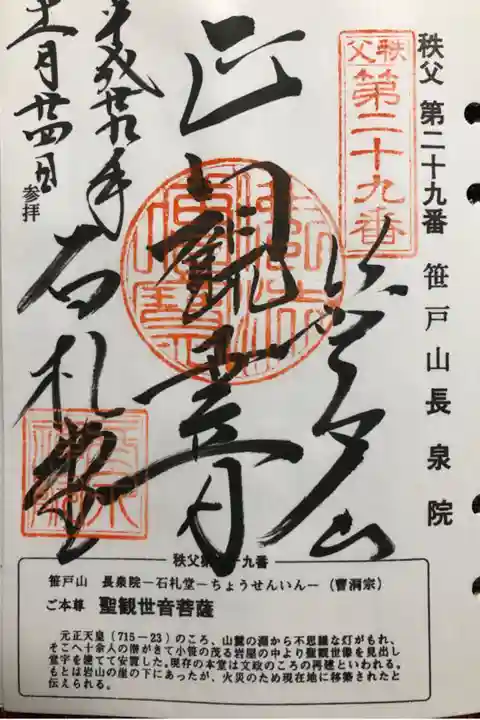 秩父 第二十九番 笹戸山長泉院
秩父
第二十九番
笹戸山
正観音
石札堂
平成廿九年
十一月廿四日
参拝
秩父第二十九番
笹戸山 長泉院−石札堂−ちょうせんいん−(曹洞宗)
ご本尊 聖観世音菩薩
元正天皇(715−23)のころ、山麓の淵から不思議な灯がもれ、
そこへ十余人の僧がきて小笹の茂る岩屋の中より聖観世像を見出し
堂宇を建てて安置した。現存の本堂は文政のころの再建といわれる。
もとは岩山の崖の下にあったが、火災のため現在地に移築されたと
伝えられる。